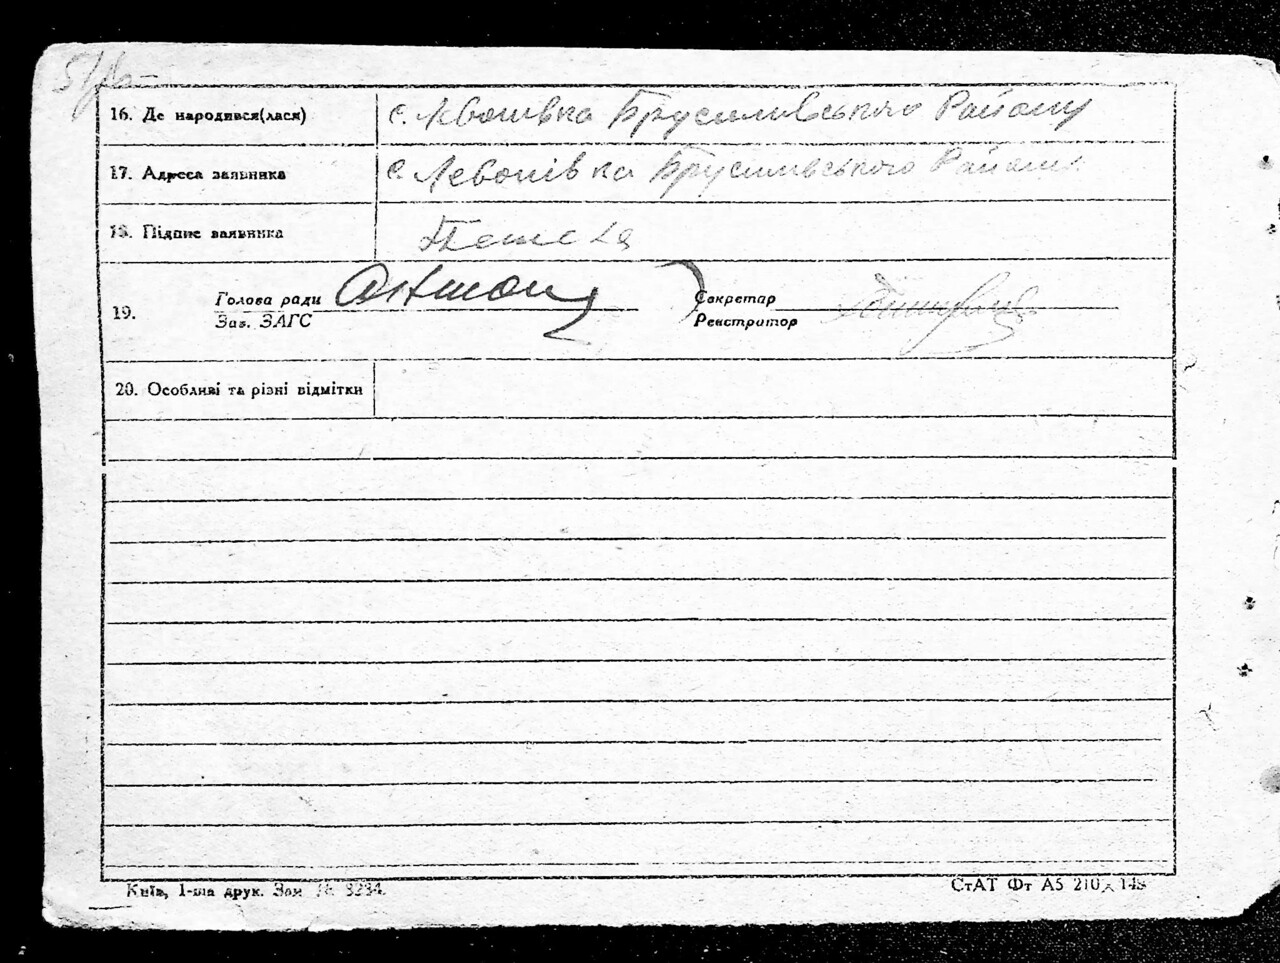 16. Де народився(лася) с. Левонівка Брусилівського Району
17. Адреса заявника с. Левонівка Брусилівського Району
18. Підпис заявника
19. Голова ради Секретар
Зав. ЗАГС Реєстратор
20. Особливі та різні відмітки
Київ, 1-ша друк. Зам № 3234.
СтАТ Фт А5 210 х 148